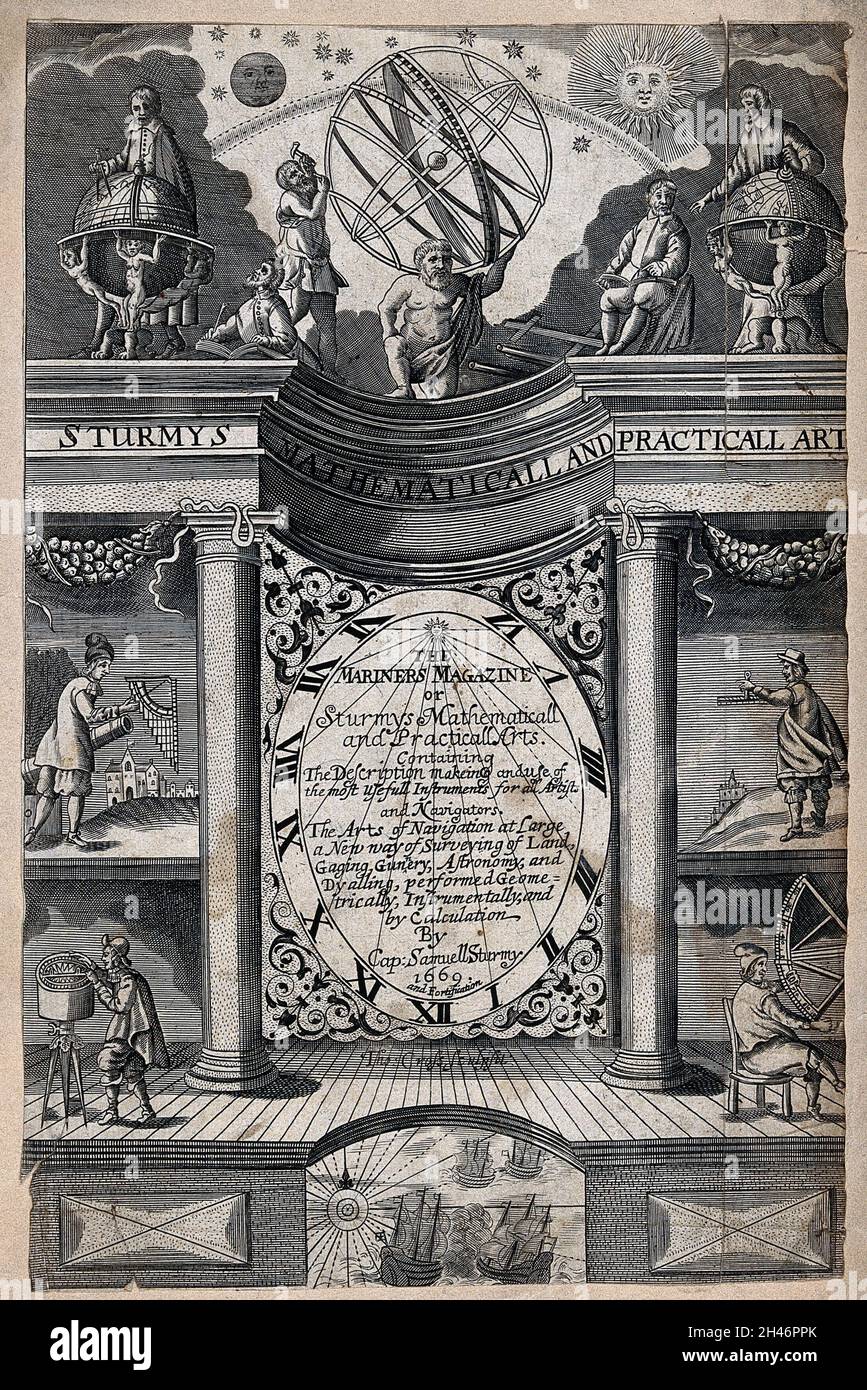 STURMYS MATHEMATICALL AND PRACTICALL ART
THE
MARINERS MAGAZINE
or
Sturmys Mathematicall
and Practicall Arts.
Containing
The Description makeing and use of
the most usefull Instruments for all Artist
and Navigators.
The Arts of Navigation at Large
a New way of Surveying of Land,
Gaging, Gunery, Astronomy, and
Dyalling, performed Geome=
trically, Instrumentally, and
by Calculation
By
Cap: Samuell Sturmy
1669
and Fortification
VI
V
IIII
III
II
I
XII
XI
X
IX
VIII
VII
VI
alamy
Image ID: 2H46PPK
www.alamy.com